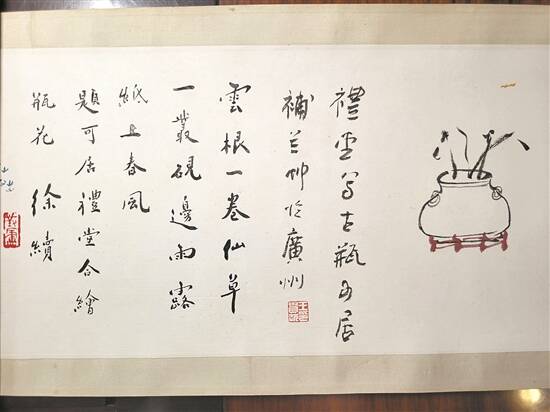 禮堂寫古瓶可居
補蘭艸於廣州
雲根一卷仙草
一叢硯邊雨露
紙上春風
題可居禮堂合繪
瓶花 徐續